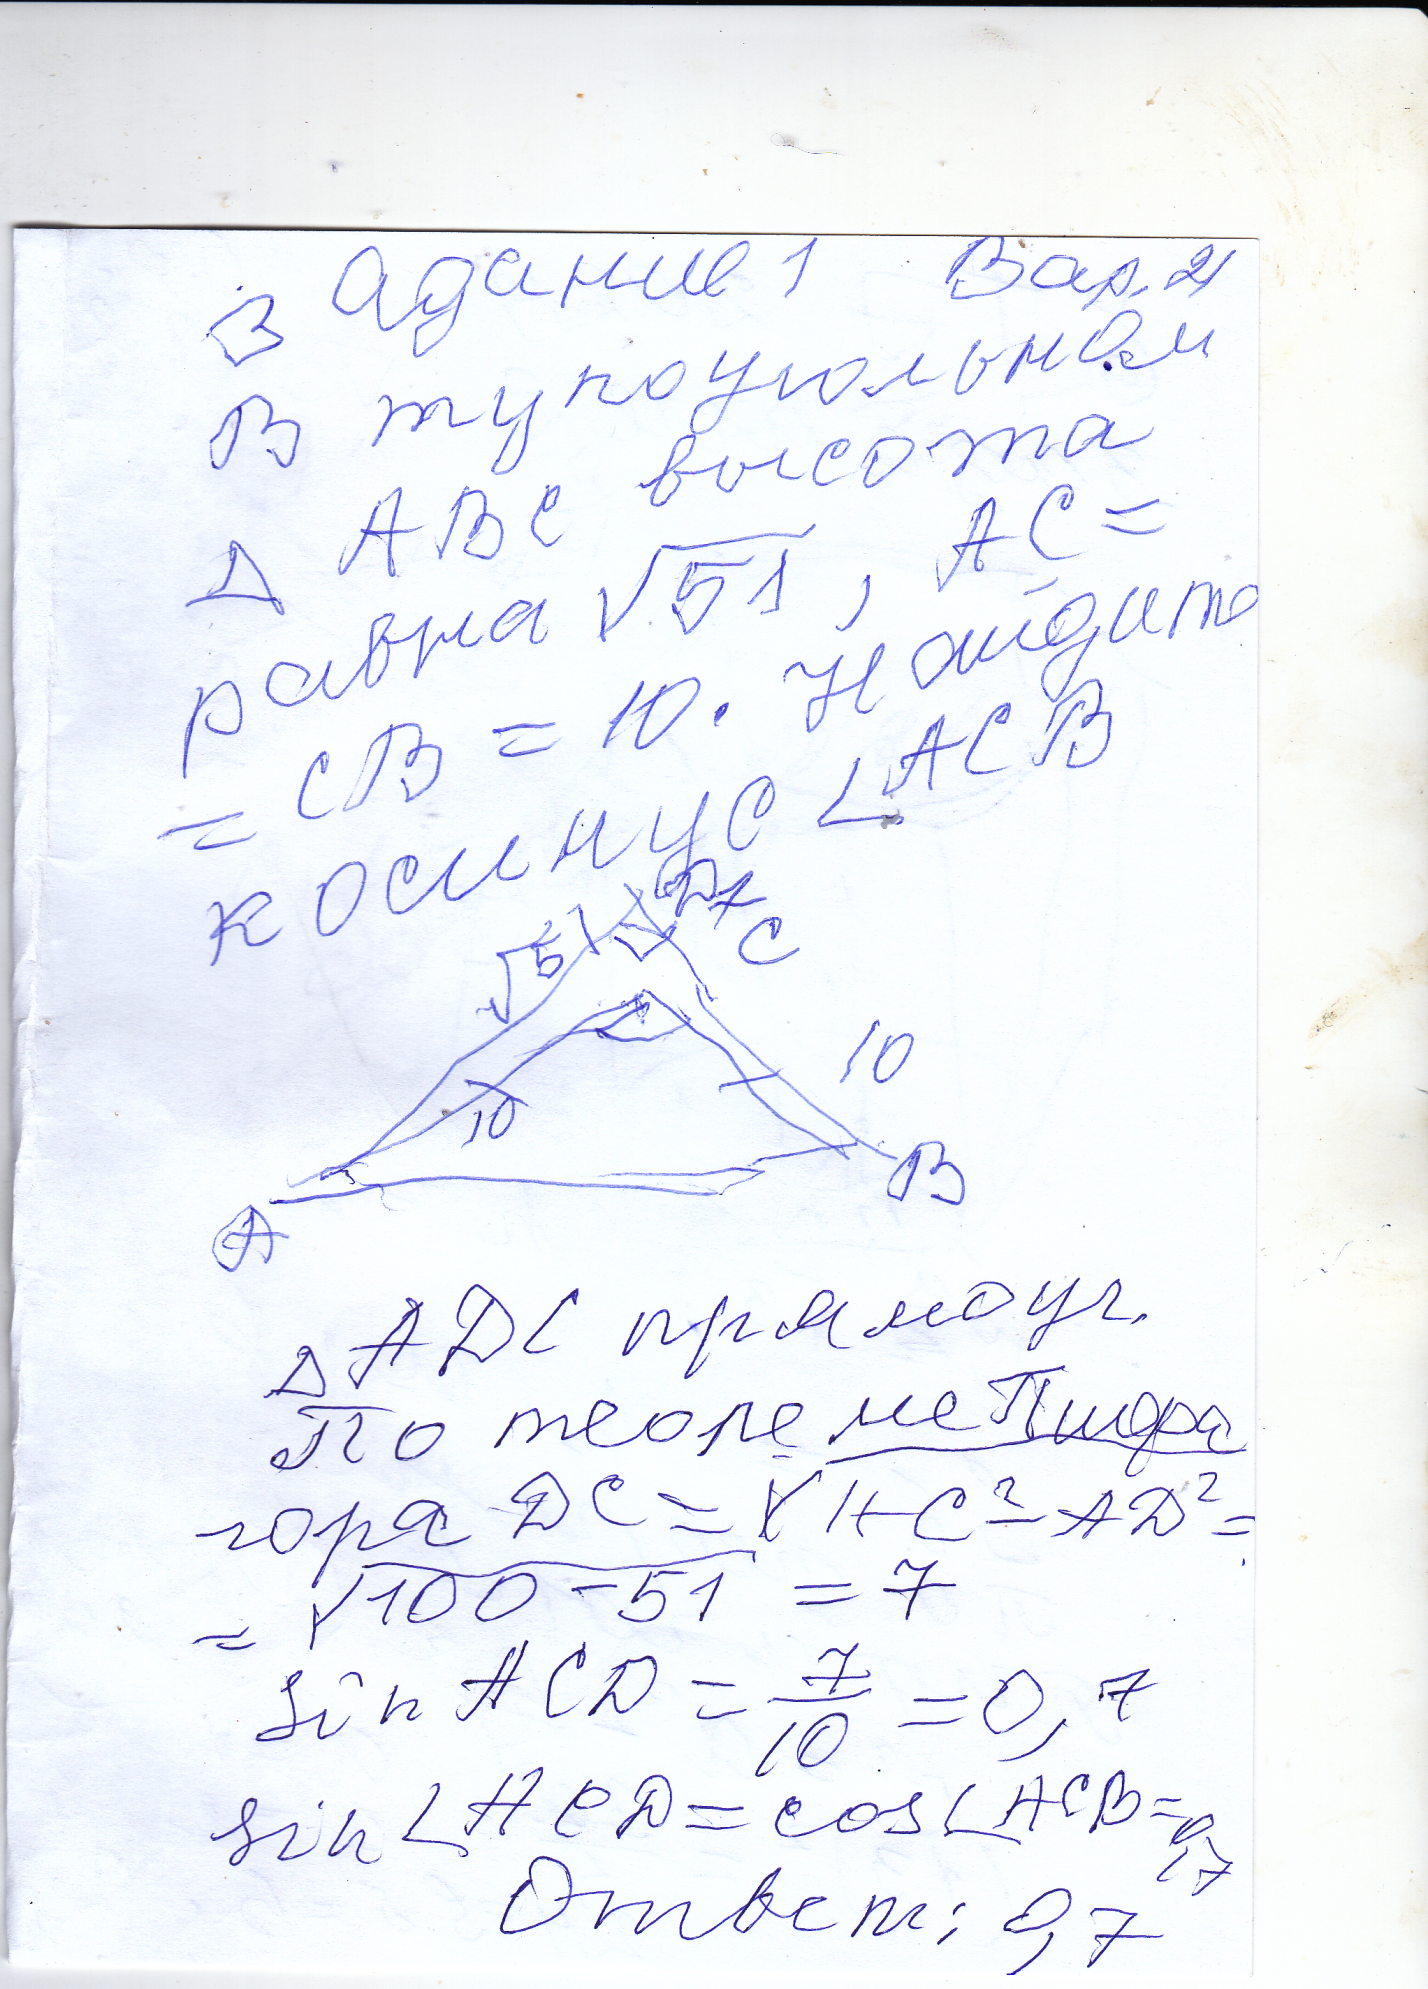 Задание 1 Вар. 21
В тупоугольном
Δ ABC высота
равна √51, AC=
= CB = 10. Найдите
косинус ∠ACB
√51 D 7
C
10
10
A
B
Δ ADC прямоуг.
По теореме Пифа
гора DC = √AC² - AD² =
= √100-51 = 7
sin ACD = 7/10 = 0,7
sin ∠ACD = cos ∠ACB = 0,7
Ответ: 0,7